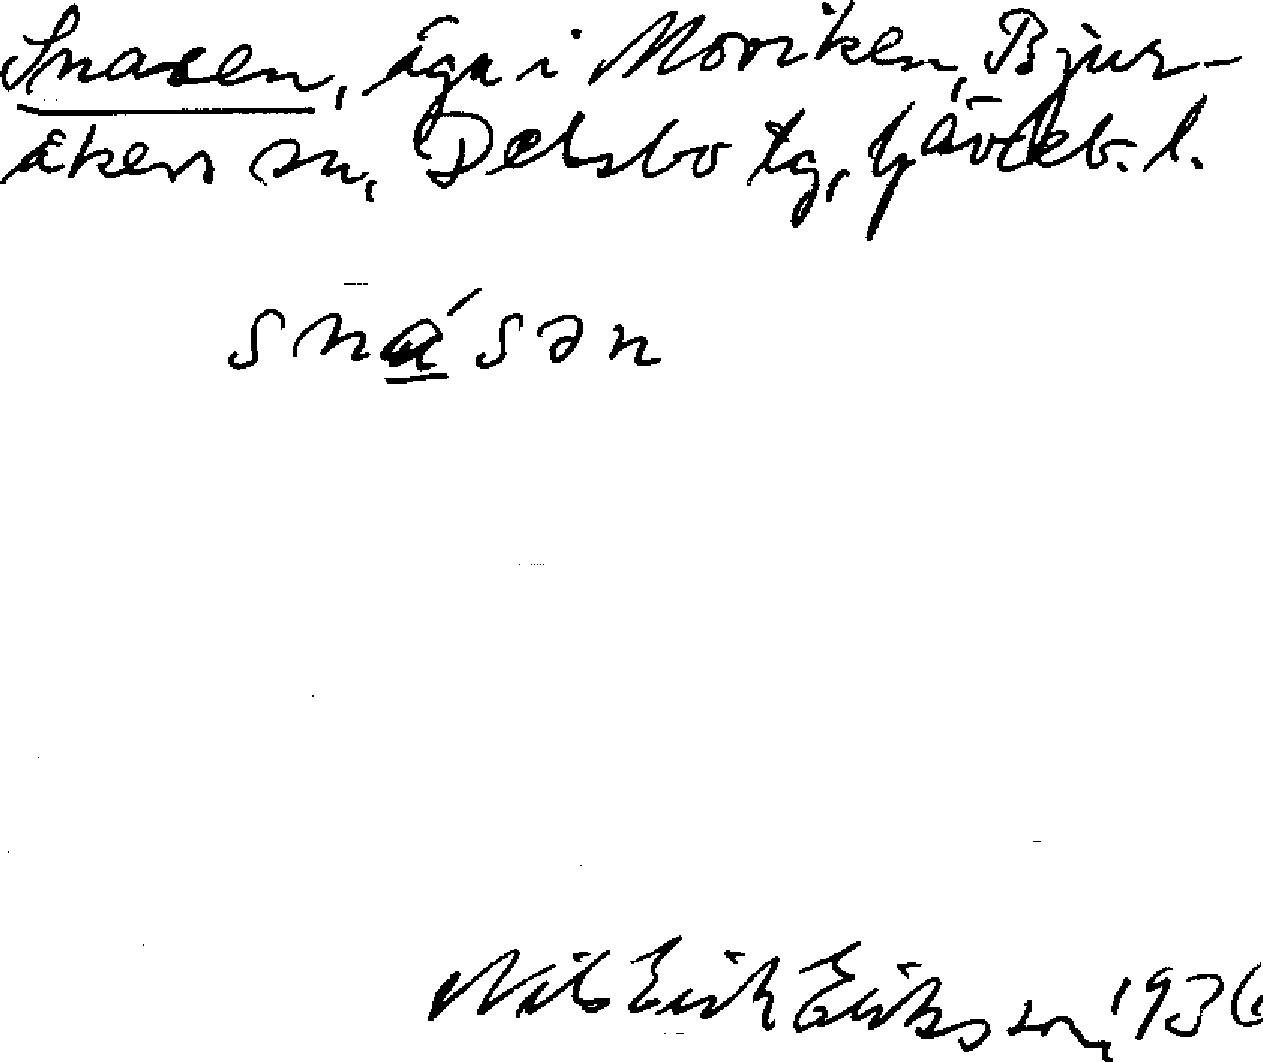 Snasen, äga i Moviken, Bjur-
åkers sn, Delsbo tg, Gävleb. l.
snásən
Nils Erik Eriksson, 1936